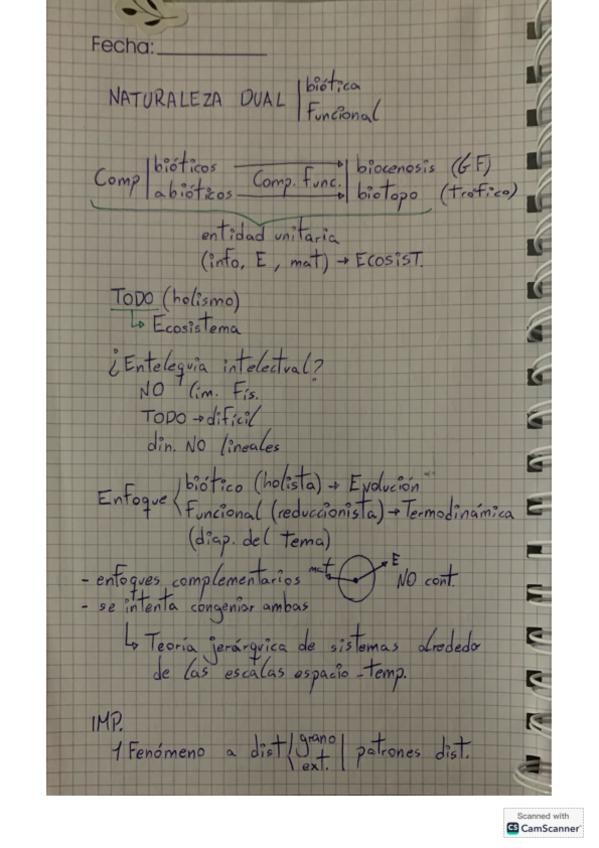 Fecha:
NATURALEZA DUAL | biótica
Funcional
Comp | bióticos → biocenosis (GF)
abióticos Comp. func. → biotopo (trófico)
entidad unitaria
(info, E, mat) → ECOSIST.
TODO (holismo)
↳ Ecosistema
¿Entelequia intelectual?
NO lim. Fís.
TODO → difícil
din. NO lineales
Enfoque biótico (holista) → Evolución
Funcional (reduccionista) → Termodinámica
(diap. del tema)
- enfoques complementarios mat E NO cont.
- se intenta congeniar ambas
↳ Teoría jerárquica de sistemas alrededo
de las escalas espacio-temp.
IMP.
1 Fenómeno a dist grano | patrones dist.
ext.
Scanned with
CS CamScanner